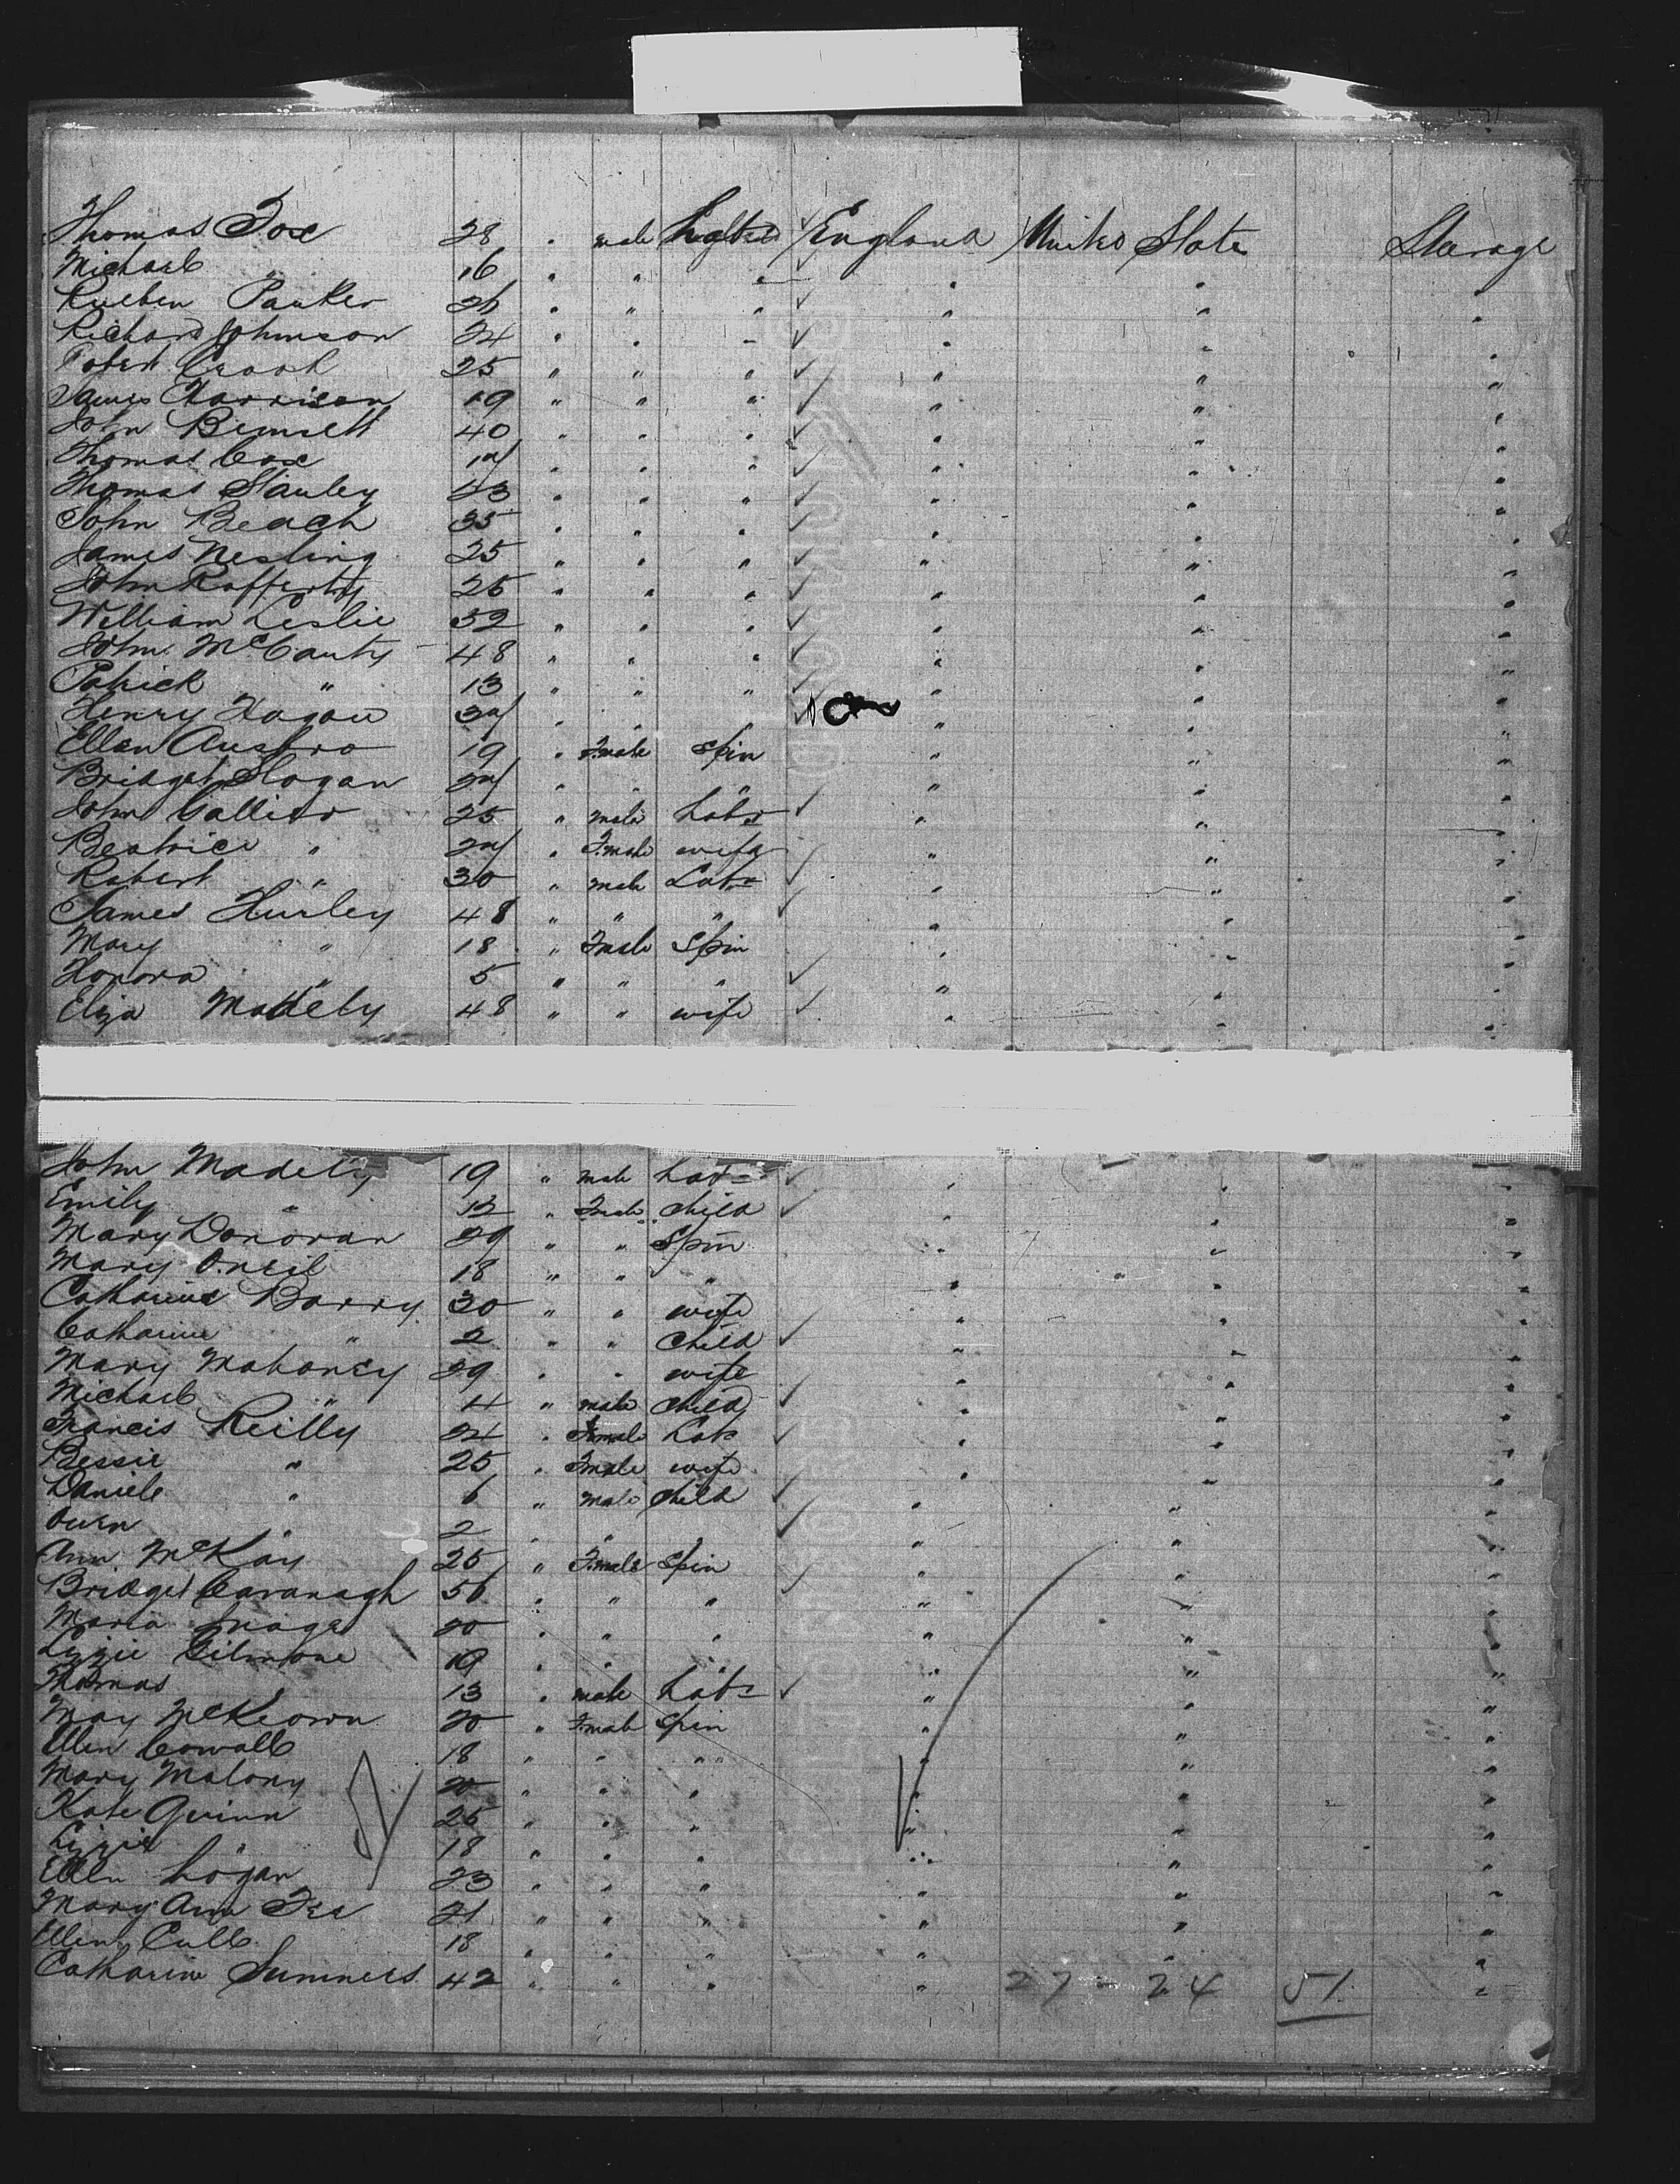 Thomas Fox 28 " male England Unites States Steerage
Michael " 16 " " " " " "
Rueben Parker 26 " " " " " "
Richard Johnson 24 " " " " " "
Robert Crook 25 " " " " " "
James Harrison 19 " " " " " "
John 40 " " " " " "
Thomas Cox " " " " " "
Thomas Stanley 23 " " " " " "
John Beach 35 " " " " " "
James Nesling 25 " " " " " "
John Rafferty 25 " " " " " "
William Leslie 32 " " " " " "
John McCanty 48 " " " " " "
Patrick " 13 " " " " " "
Henry Hagan " " " " "
Ellen 19 " Female Spin " " "
Bridget Hogan " " " " " "
John 25 " male Labr " " "
Beatrice " " Female wife " " "
Robert " 30 " male Labr " " "
James Hurley 48 " " " " " "
Mary " 18 " Female Spin " " "
Honora " 5 " " " " " "
Eliza Madely 48 " " wife " " "
John Madely 19 " male Labr " " "
Emily " 12 " Female child " " "
Mary Donovan 29 " " Spin " " "
Mary Oneil 18 " " " " " "
Catharine Barry 30 " " wife " " "
Catharine " 2 " " child " " "
Mary Mahoney 29 " " wife " " "
Michael " 4 " male child " " "
Francis Reilly 24 " male Labr " " "
Bessie " 25 " Female wife " " "
Daniele " 6 " male child " " "
Owen " 2 " " " " " "
Ann McKay 25 " Female Spin " " "
Bridget Cavanagh 56 " " " " " "
Maria 20 " " " " " "
Lizzie Gilmore 19 " " " " " "
Thomas 13 " male Labr " " "
May McKeown 20 " Female Spin " " "
Ellen 18 " " " " " "
Mary Malony 20 " " " " " "
Kate Quinn 25 " " " " " "
Lizzie " 18 " " " " " "
Ellen Logan 23 " " " " " "
Mary Ann 21 " " " " " "
Ellen Cull 18 " " " " " "
Catharine Summers 42 " " " " 27 - 24 51 "